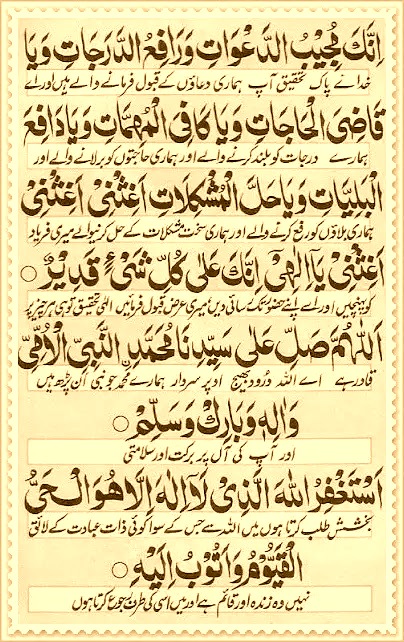 اِنَّكَ مُجِيْبُ الدَّعْوَاتِ وَرَافِعُ الدَّرَجَاتِ وَيَا
خدائے پاک تحقیق آپ ہماری دعاؤں کے قبول فرمانے والے ہیں اور اے
قَاضِیَ الْحَاجَاتِ وَيَا كَافِیَ الْمُهِمَّاتِ وَيَا دَافِعَ
ہمارے درجات کو بلند کرنے والے اور ہماری حاجتوں کو برلانے والے اور
الْبَلِيَّاتِ وَيَا حَلَّ الْمُشْكِلَاتِ اَغِثْنِیْ اَغِثْنِیْ
ہماری بلاؤں کو رفع کرنے والے اور ہماری سخت مشکلات کے حل کرنیوالے میری فریاد
اَغِثْنِیْ يَا اِلٰهِیْ اِنَّكَ عَلٰی كُلِّ شَیْءٍ قَدِيْرٌ ○
کو پہنچیں اور اے اپنے حضور تک رسائی دیں میری عرض قبول فرمائیں الٰہی تحقیق تو ہی ہر چیز پر
اَللّٰهُمَّ صَلِّ عَلٰی سَيِّدِنَا مُحَمَّدِ النَّبِیِّ الْاُمِّیِّ
قادر ہے اے اللہ درود بھیج اوپر سردار ہمارے محمدؐ جو نبی اَن پڑھ ہیں
وَاٰلِهٖ وَبَارِكْ وَسَلِّمْ ○
اور آپ کی آل پر برکت اور سلامتی
اَسْتَغْفِرُ اللّٰهَ الَّذِیْ لَا اِلٰهَ اِلَّا هُوَ الْحَیُّ
بخشش طلب کرتا ہوں میں اللہ سے جس کے سوا کوئی ذات عبادت کے لائق
الْقَيُّوْمُ وَاَتُوْبُ اِلَيْهِ ○
نہیں وہ زندہ اور قائم ہے اور میں اسی کی طرف رجوع کرتا ہوں